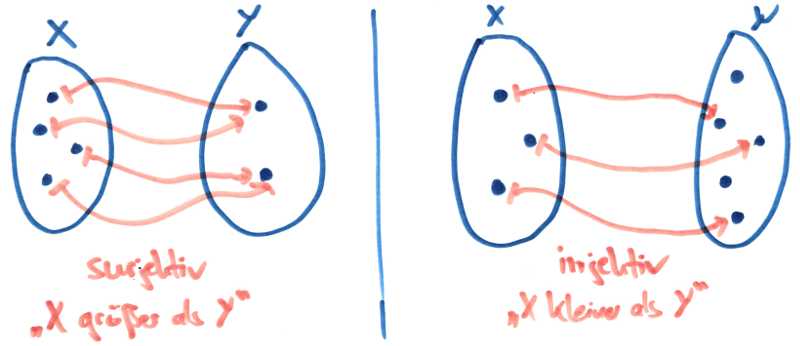 X Y
surjektiv
„X größer als Y“
X Y
injektiv
„X kleiner als Y“